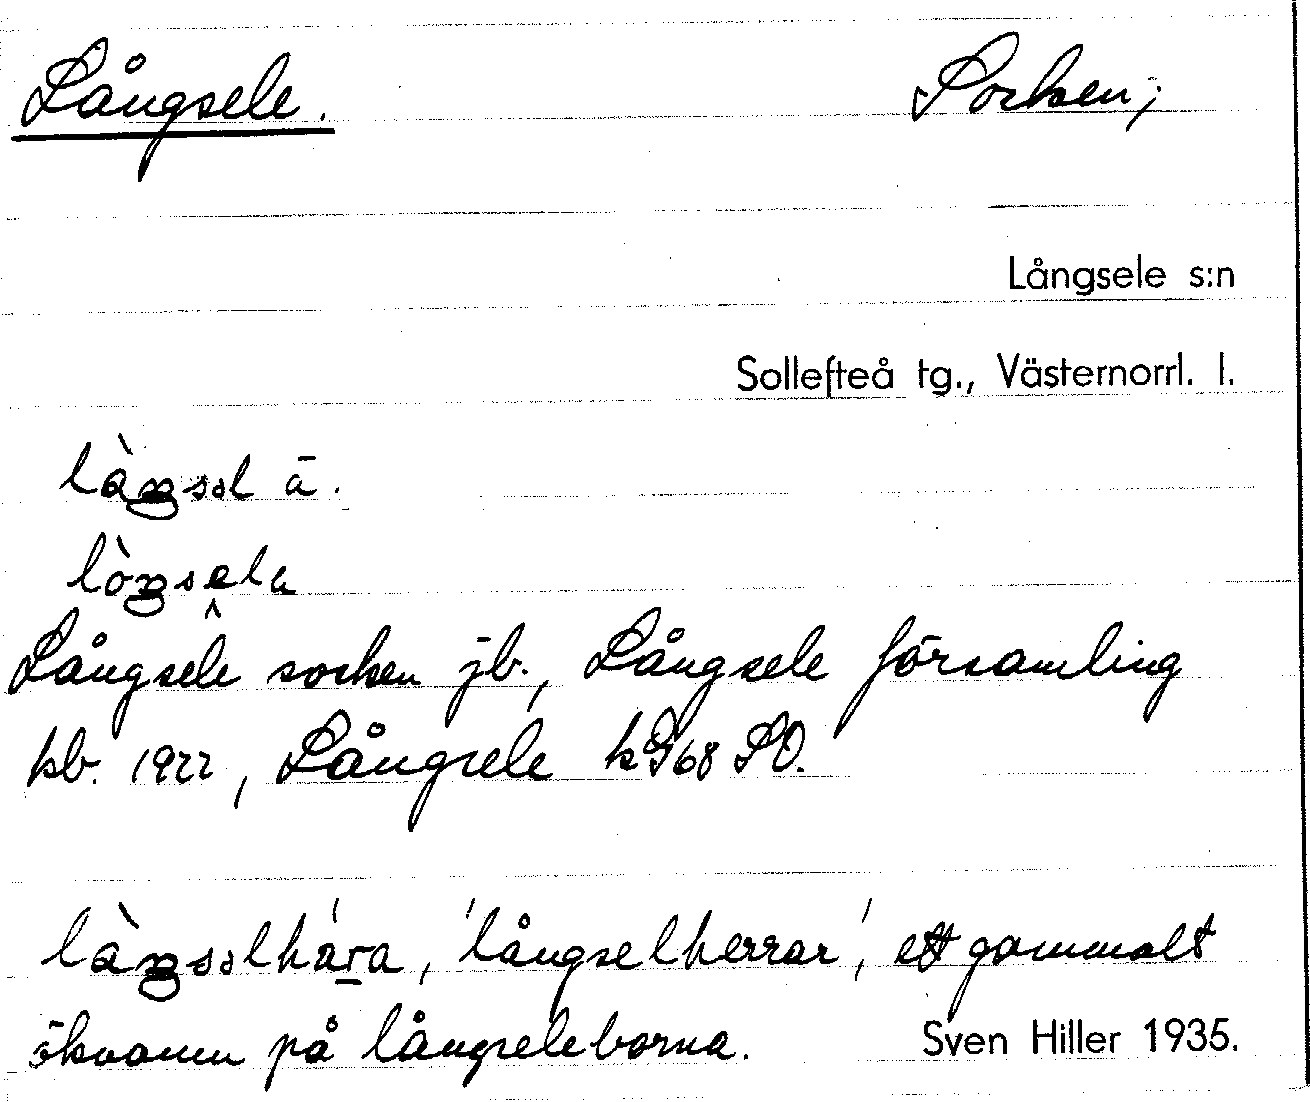 Långsele. Socken;
Långsele s:n
Sollefteå tg., Västernorrl. l.
là̀ŋsəl ā.
lòŋsela
Långsele socken jb., Långsele församling
kb. 1922, Långsele kG68SO.
làŋsəlhára, 'långselherrar', ett gammalt
öknamn på långseleborna. Sven Hiller 1935.